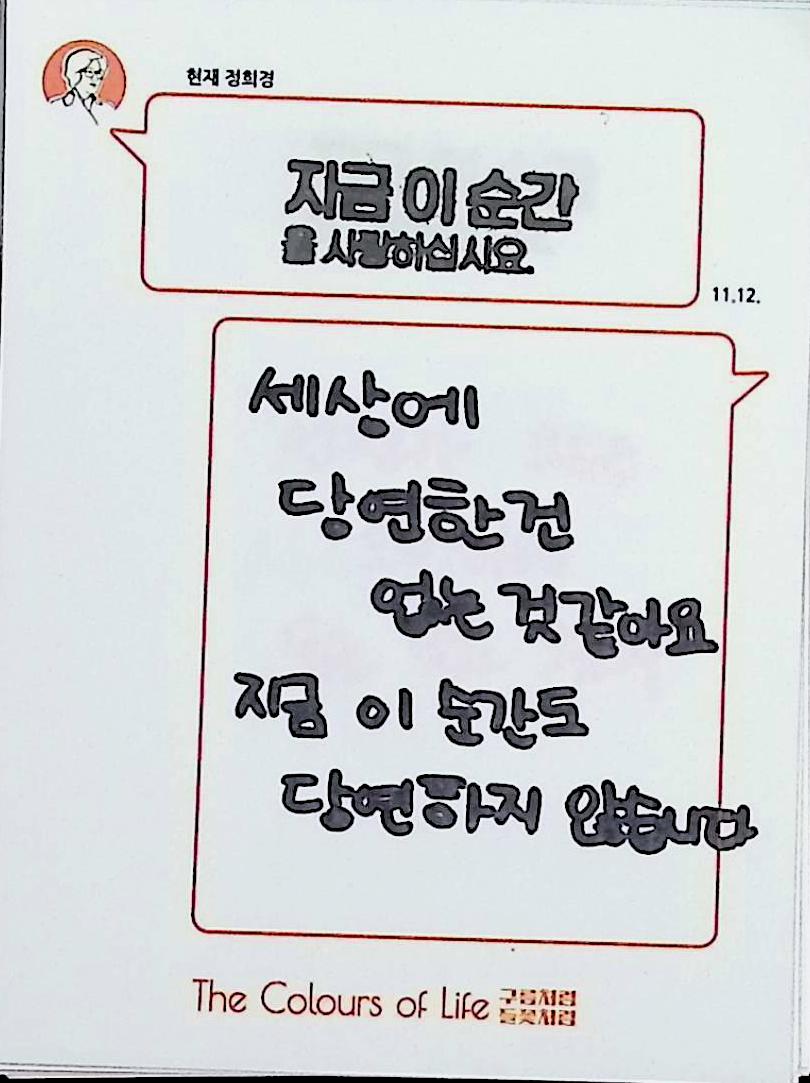 현재 정희경
지금 이 순간
을 사랑하십시요.
11.12.
세상에
당연한건
없는 것 같아요
지금 이 순간도
당연하지 않습니다
The Colours of Life 구름처럼
들꽃처럼